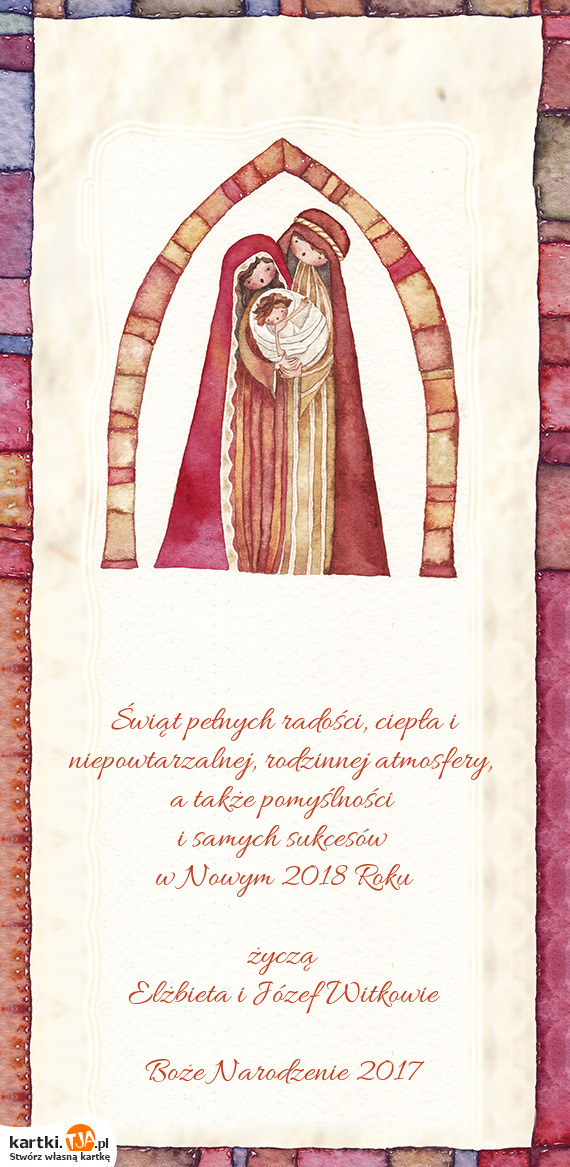 Świąt pełnych radości, ciepła i
niepowtarzalnej, rodzinnej atmosfery,
a także pomyślności
i samych sukcesów
w Nowym 2018 Roku
życzą
Elżbieta i Józef Witkowie
Boże Narodzenie 2017
kartki.TJA.pl
Stwórz własną kartkę